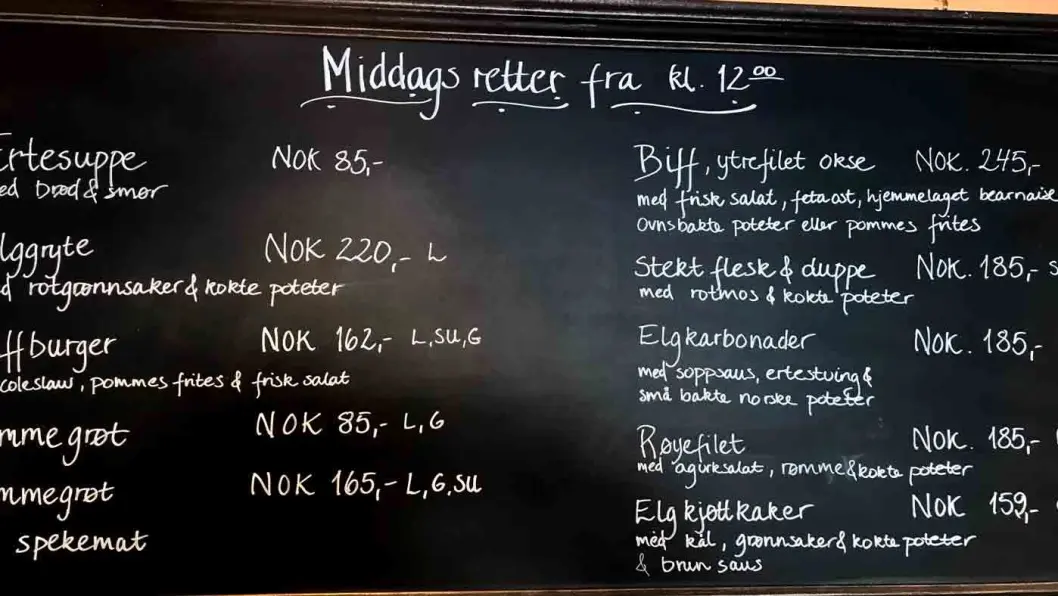 Middags retter fra kl. 12⁰⁰
ertesuppe NOK 85,-
ed brød & smør
lggryte NOK 220,- L
d rotgrønnsaker & kokte poteter
ffburger NOK 162,- L,SU,G
coleslaw, pommes frites & frisk salat
mmegrøt NOK 85,- L,G
mmegrøt NOK 165,- L,G,SU
spekemat
Biff, ytrefilet okse NOK. 245,-
med frisk salat, fetaost, hjemmelaget bearnaise
Ovnsbakte poteter eller pommes frites
Stekt flesk & duppe NOK. 185,- S
med rotmos & kokte poteter
Elgkarbonader NOK. 185,-
med soppsaus, ertestuing &
små bakte norske poteter
Røyefilet NOK. 185,-
med agurksalat, rømme & kokte poteter
Elgkjøttkaker NOK 159,-
med kål, grønnsaker & kokte poteter
& brun saus